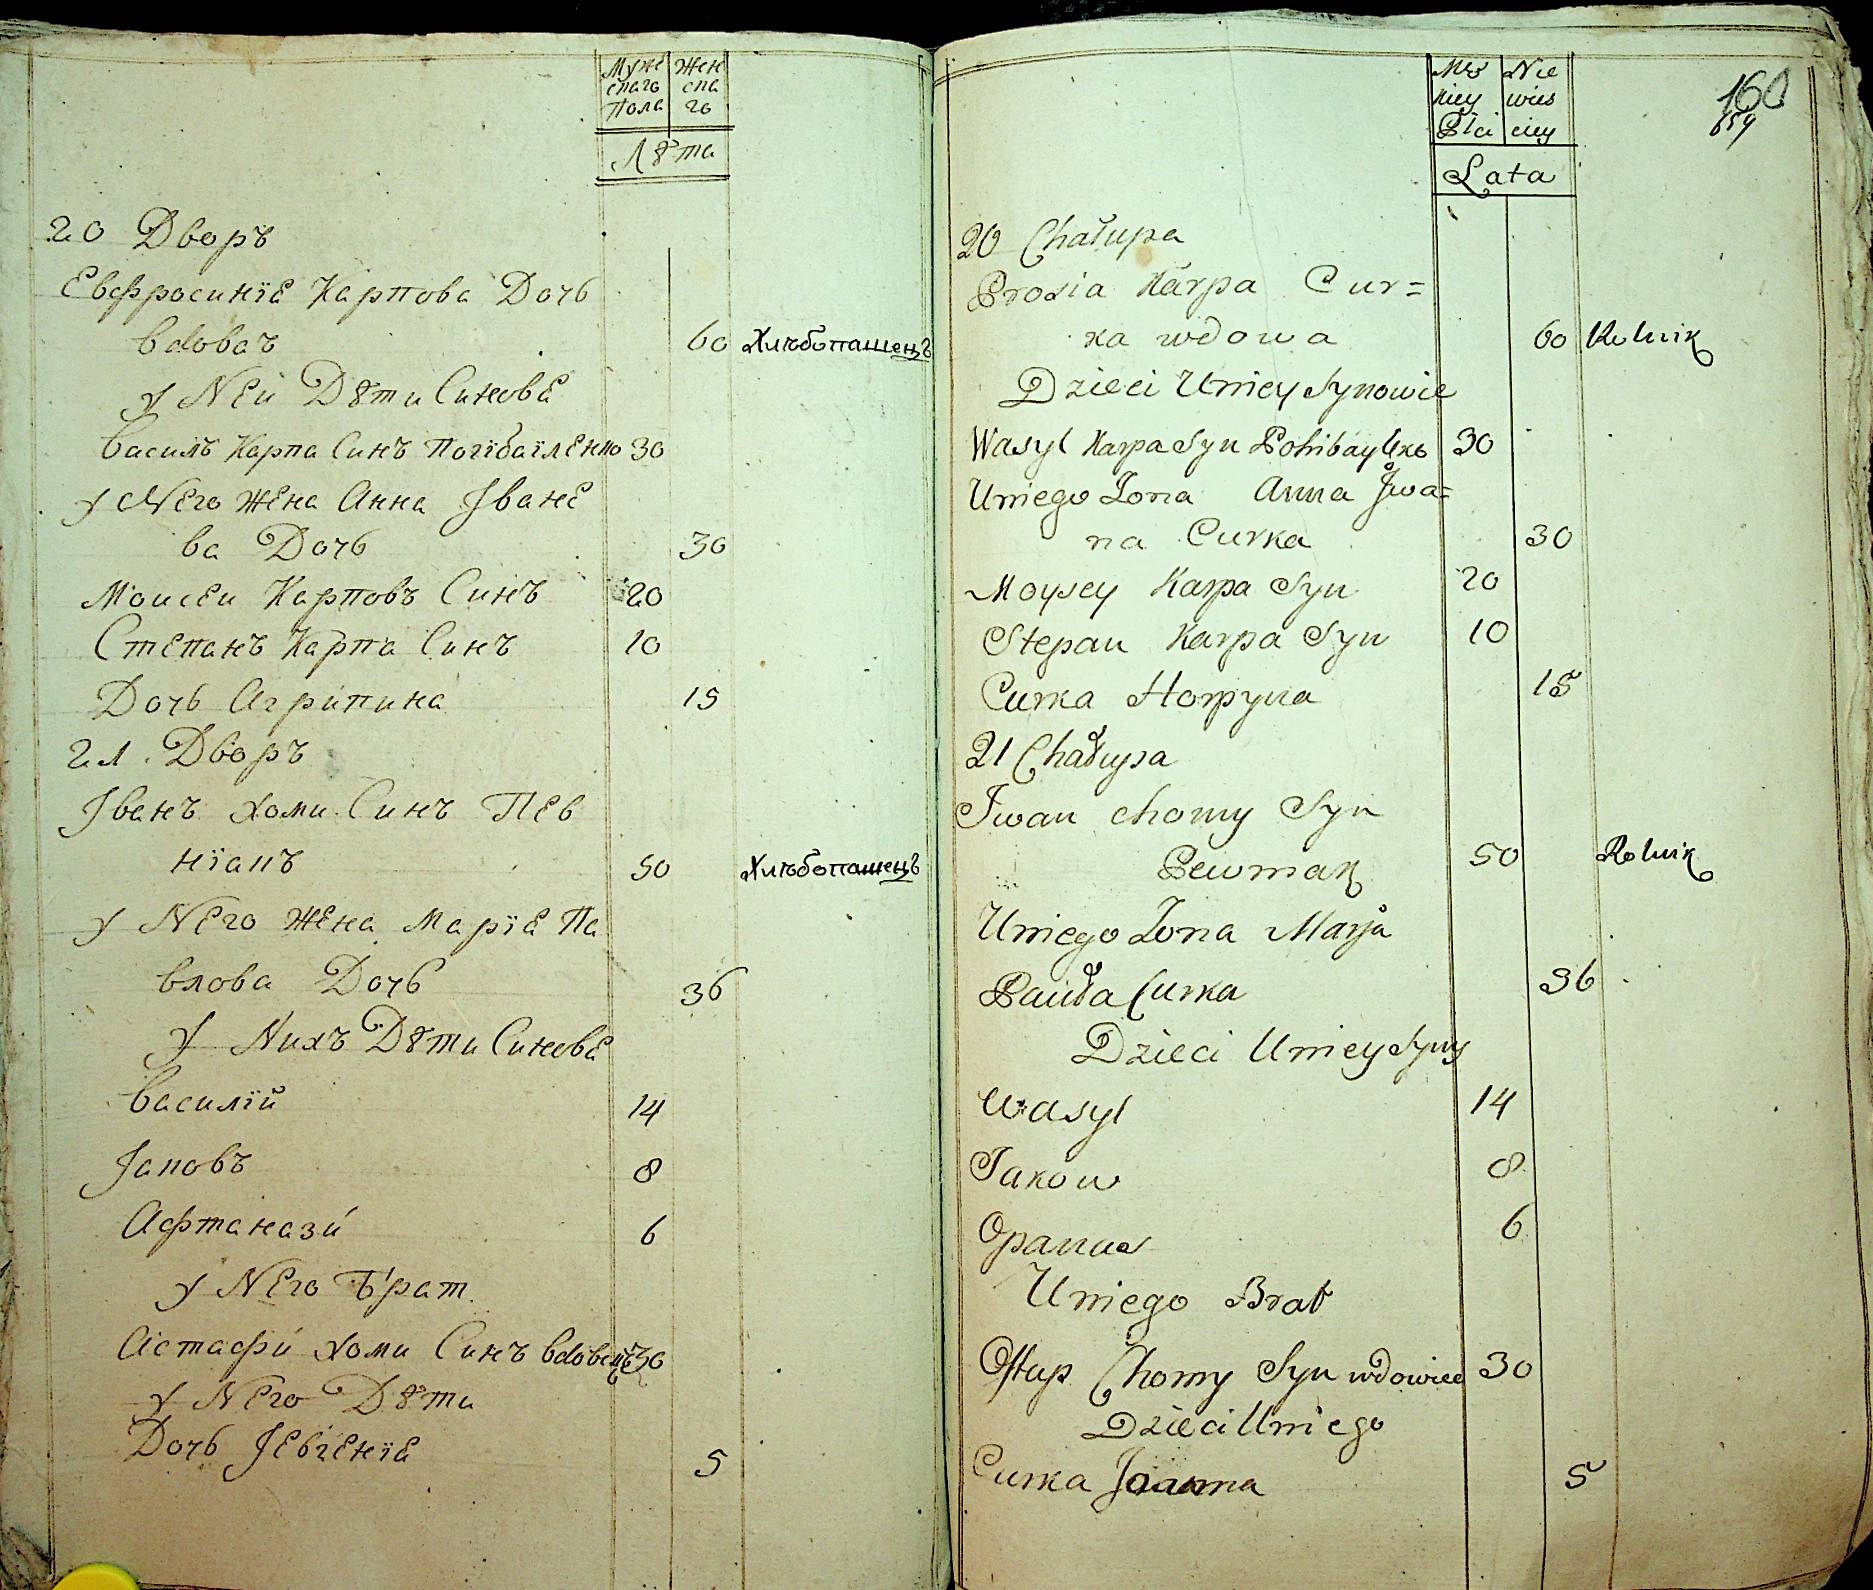 Муже Жен
скаго ска
Пола го
Лѣта
20 Дворъ
Евфросиніе Карпова Дочь
вдоваъ 60 Хлѣбопашецъ
у Ней Дѣти Синове
Василъ Карпа Синъ Погібаіленко 30
у Него Жена Анна Іване
ва Дочь 30
Моисеи Карповъ Синъ 20
Степанъ Карпа Синъ 10
Дочь Агріпина 15
21 Дворъ
Іванъ Хоми Синъ Пев
ніакъ 50 Хлѣбопашецъ
у Него Жена Маріе Па
влова Дочь 36
у Нихъ Дѣти Синове
Василій 14
Іаковъ 8
Афтаназй 6
у Него Брат
Астафй Хоми Синъ вдовецъ 30
у Него Дѣти
Дочь Іевгеніе 5
Męs Nie
kiey wies
Płci ciey
Lata
160
659
20 Chałupa
Prosia Karpa Cur=
ka wdowa 60 Rolnik
Dzieci Uniey Synowie
Wasyl Karpa Syn Pohibaylko 30
Uniego Zona Anna Jwa=
na Curka 30
Moysey Karpa Syn 20
Stepan Karpa Syn 10
Curka Horpyna 15
21 Chałupa
Iwan Chomy Syn
Pewniak 50 Rolnik
Uniego Zona Marja
Pawła Curka 36
Dzieci Uniey Syny
Wasyl 14
Jakow 8
Opanas 6
Uniego Brat
Ostap Chomy Syn wdowiec 30
Dzieci Uniego
Curka 5